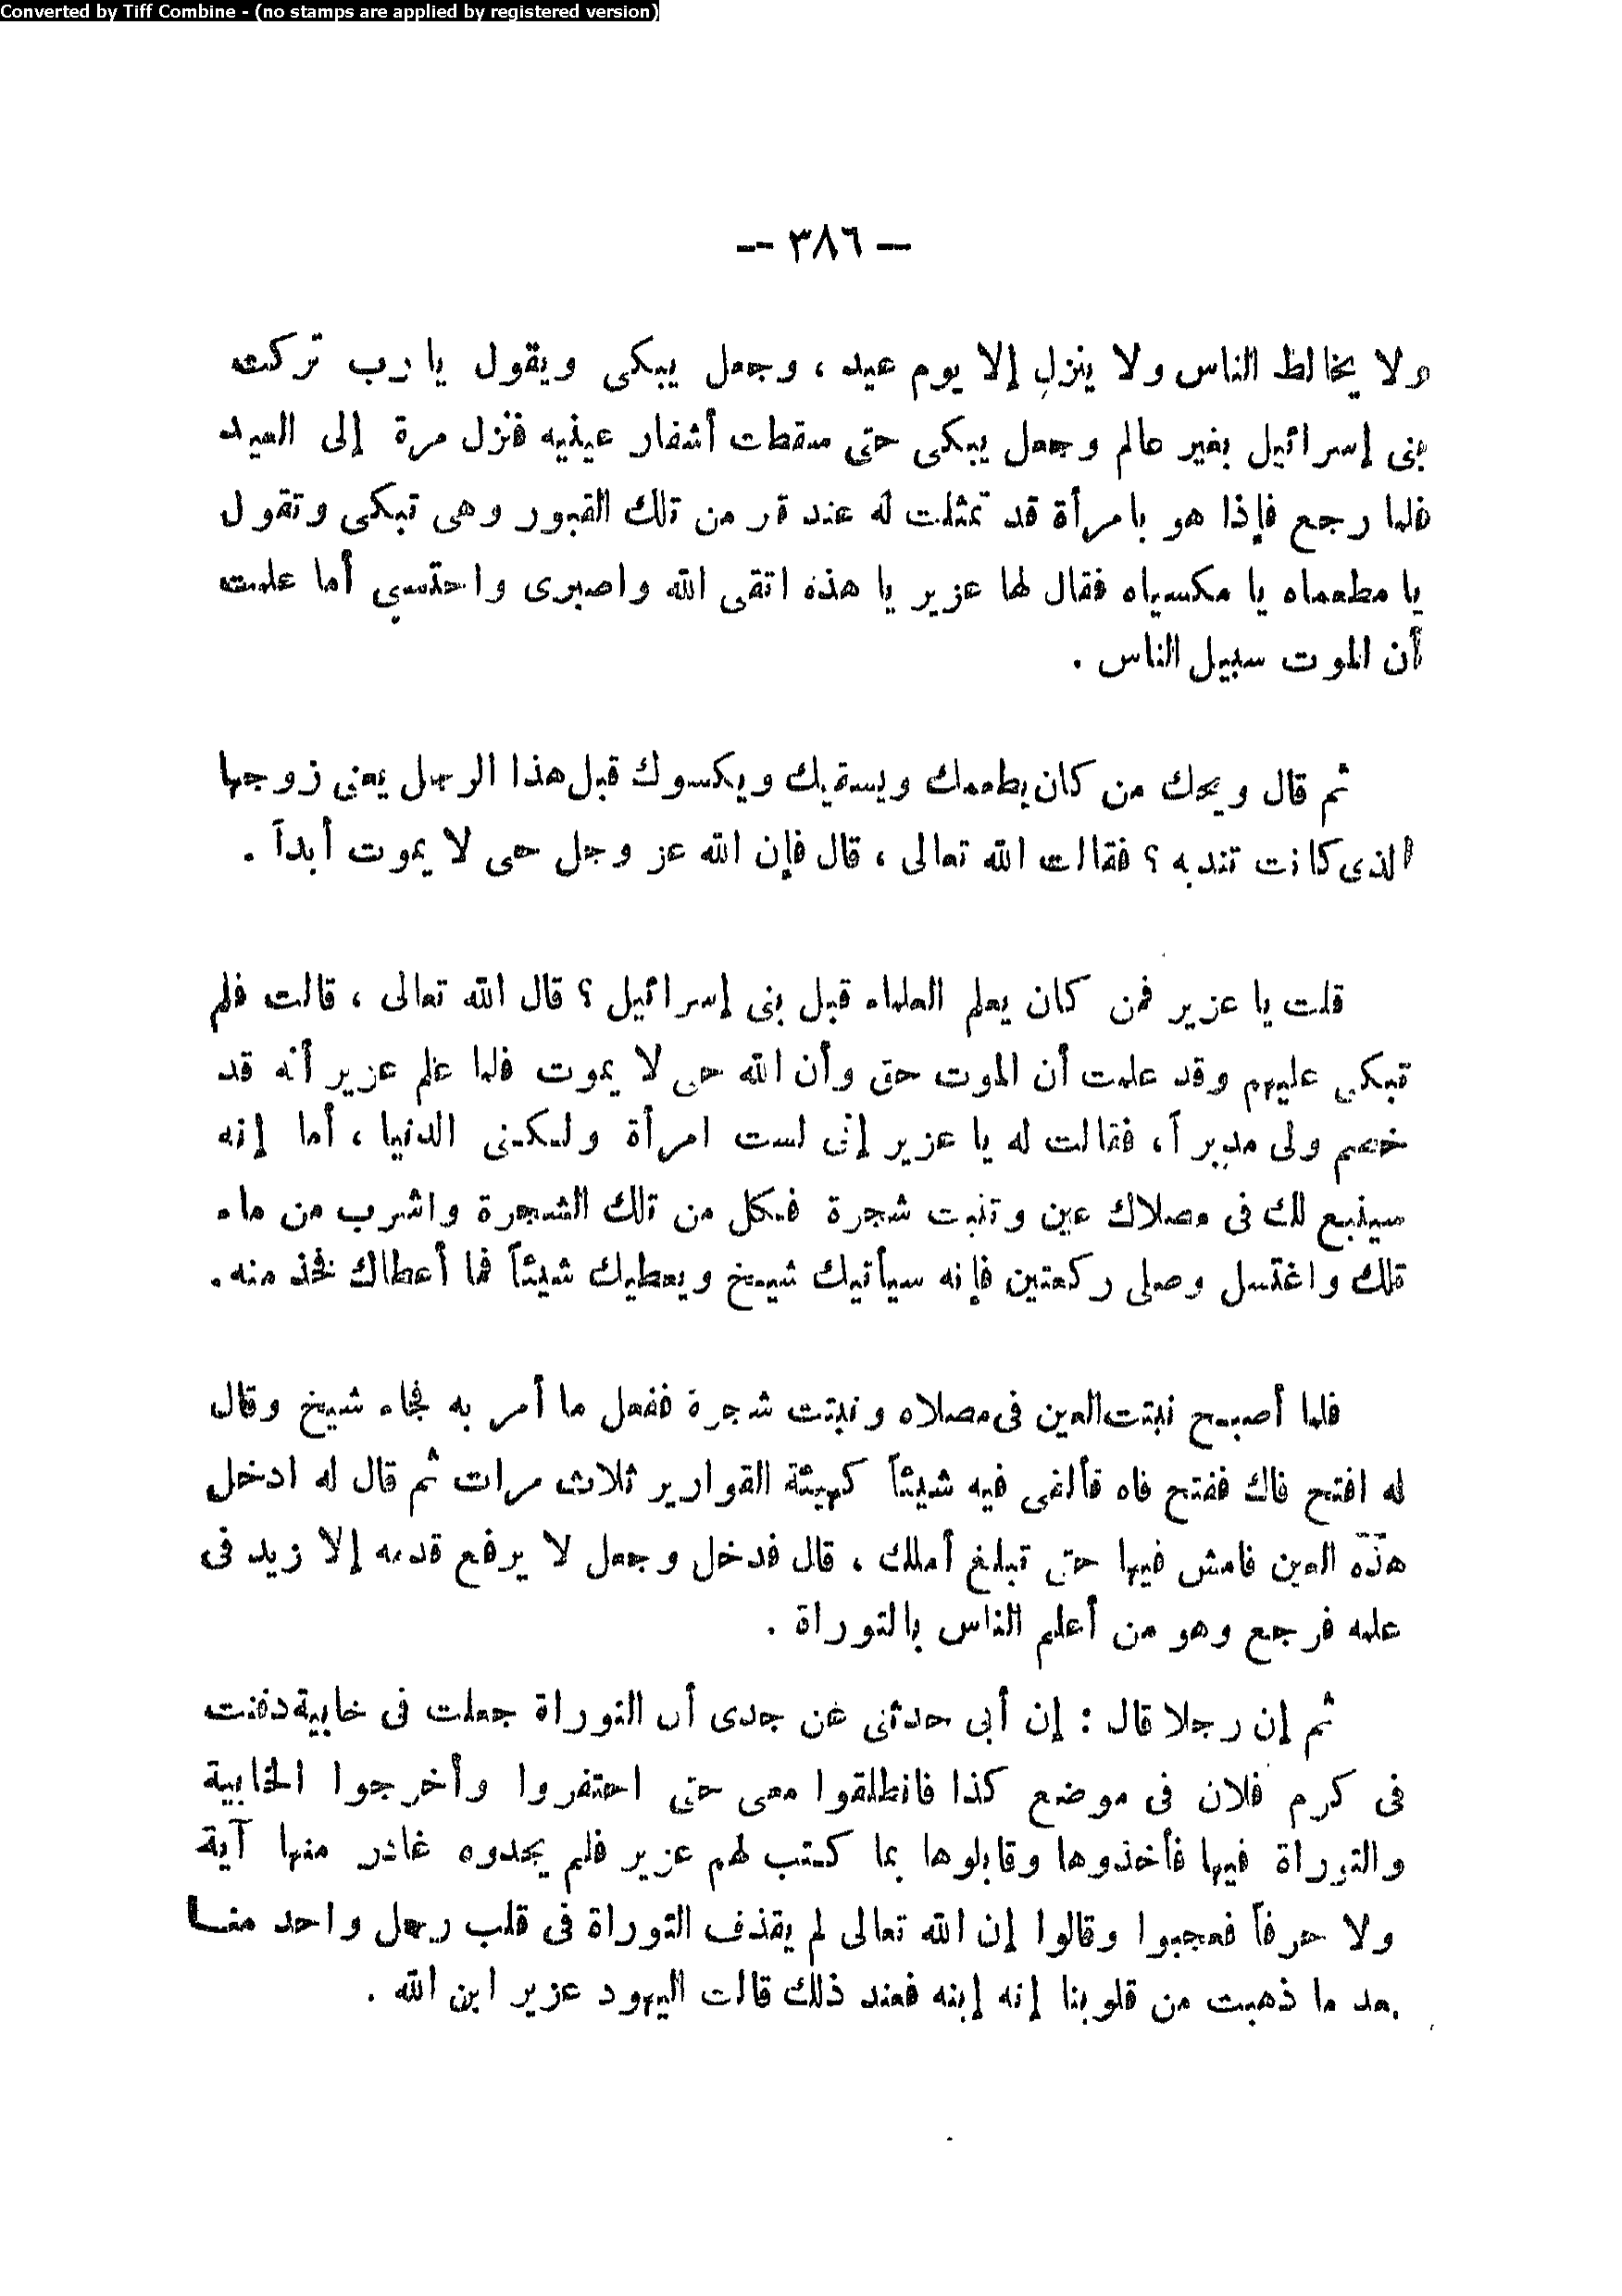 Converted by Tiff Combine - (no stamps are applied by registered version)
— ٣٨٦ —
ولا يخالط الناس ولا ينزل إلا يوم عيد ، وجعل يبكى ويقول يا رب تركت
بنى إسرائيل بغير عالم وجعل يبكى حتى سقطت أشفار عينيه فنزل مرة إلى العيد
فلما رجع فإذا هو بامرأة قد تمثلت له عند قبر من تلك القبور وهى تبكى وتقول
يا مطعماه يا مكسياه فقال لها عزير يا هذه اتقى الله واصبرى واحتسبي أما علمت
أن الموت سبيل الناس .
ثم قال ويحك من كان يطعمك ويسقيك ويكسوك قبل هذا الرجل يعنى زوجها
الذى كانت تندبه ؟ فقالت الله تعالى ، قال فإن الله عز وجل حى لا يموت أبداً .
قلت يا عزير فمن كان يعلم العلماء قبل بنى إسرائيل ؟ قال الله تعالى ، قالت فلم
تبكى عليهم وقد علمت أن الموت حق وأن الله حى لا يموت فلما علم عزير أنه قد
خصم ولى مدبراً ، فقالت له يا عزير إنى لست امرأة ولكنى الدنيا ، أما إنه
سينبع لك فى مصلاك عين وتنبت شجرة فكل من تلك الشجرة واشرب من ماء
تلك واغتسل وصلى ركعتين فإنه سيأتيك شيخ ويعطيك شيئاً فما أعطاك فخذ منه .
فلما أصبح نبتت العين فى مصلاه ونبتت شجرة ففعل ما أمر به فجاء شيخ وقال
له افتح فاك ففتح فاه فألقى فيه شيئاً كهيئة القوارير ثلاث مرات ثم قال له ادخل
هذه العين فامش فيها حتى تبلغ أملك ، قال فدخل وجعل لا يرفع قدمه إلا زيد فى
علمه فرجع وهو من أعلم الناس بالتوراة .
ثم إن رجلا قال : إن أبى حدثنى عن جدى أن التوراة جعلت فى خابية دفنت
فى كرم فلان فى موضع كذا فانطلقوا معى حتى احتفروا وأخرجوا الخابية
والتوراة فيها فأخذوها وقابلوها بما كتب لهم عزير فلم يجدوه غادر منها آية
ولا حرفاً فعجبوا وقالوا إن الله تعالى لم يقذف التوراة فى قلب رجل واحد منا
بعد ما ذهبت من قلوبنا إنه إبنه فعند ذلك قالت اليهود عزير ابن الله .